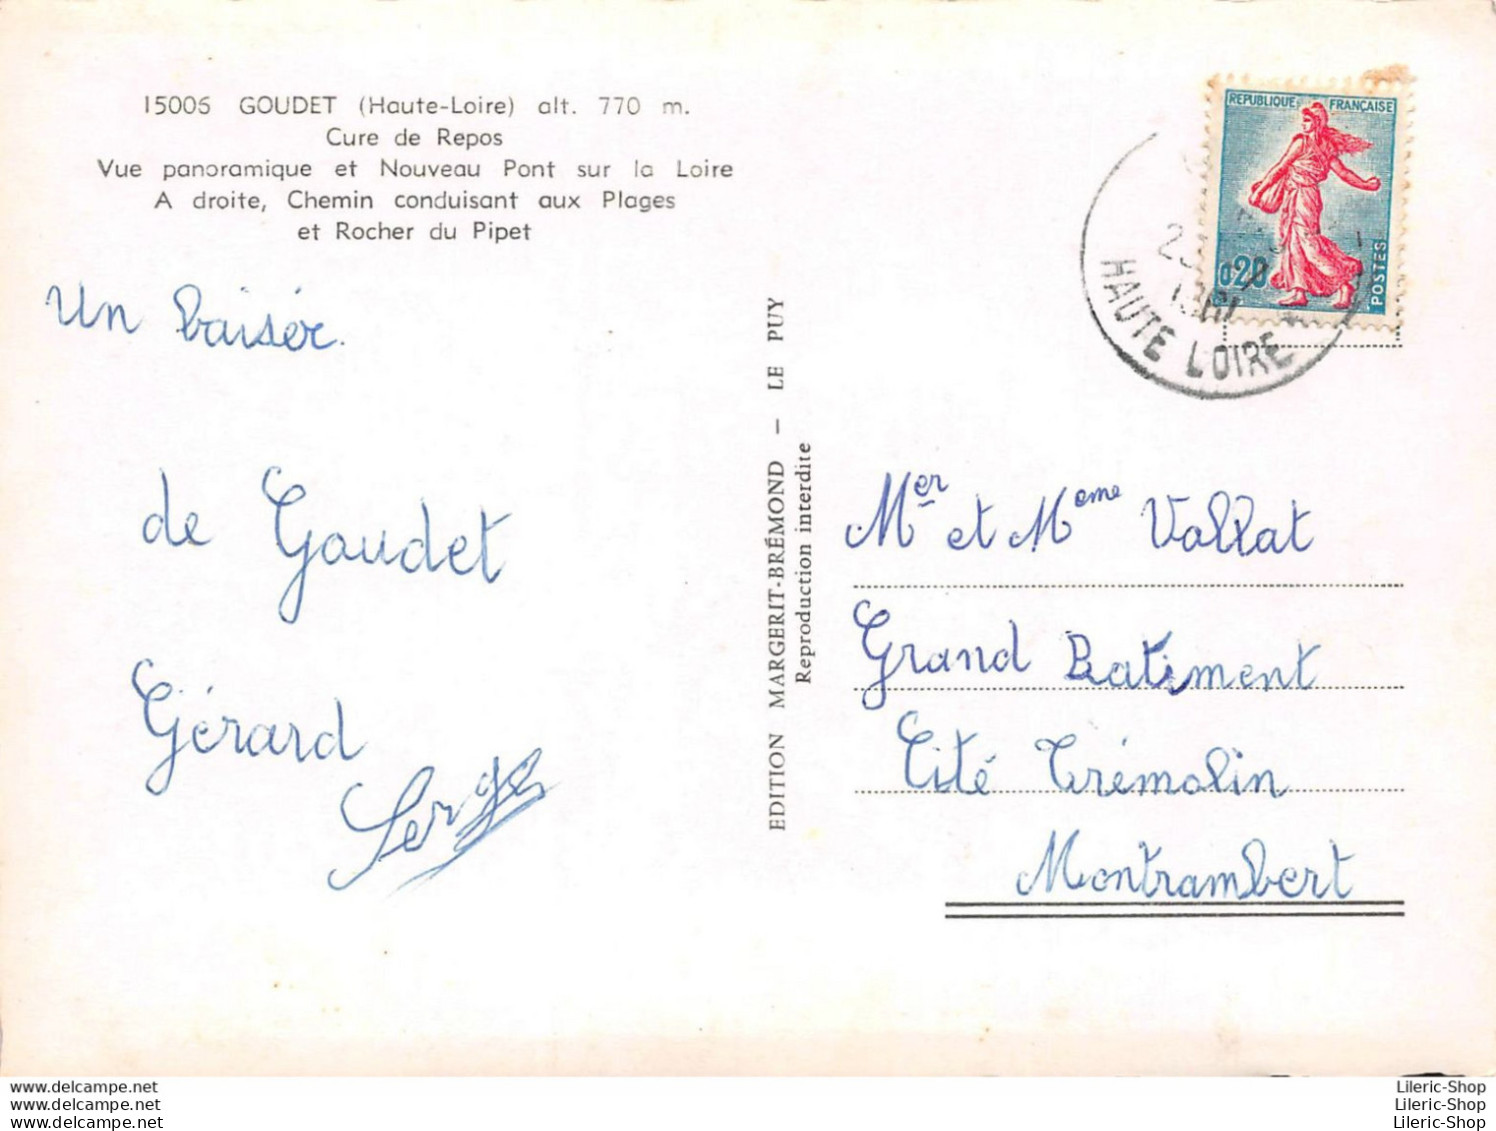 15005 GOUDET (Haute-Loire) alt. 770 m.
Cure de Repos
Vue panoramique et Nouveau Pont sur la Loire
A droite, Chemin conduisant aux Plages
et Rocher du Pipet
Un baisér.
de Goudet
Gérard
Serge
EDITION MARGERIT-BRÉMOND - LE PUY
Reproduction interdite
REPUBLIQUE FRANÇAISE
0,20
POSTES
HAUTE LOIRE
Mer et Meme Vallat
Grand Batiment
Cité Trémolin
Montrambert
www.delcampe.net
www.delcampe.net
www.delcampe.net
Lileric-Shop
Lileric-Shop
Lileric-Shop